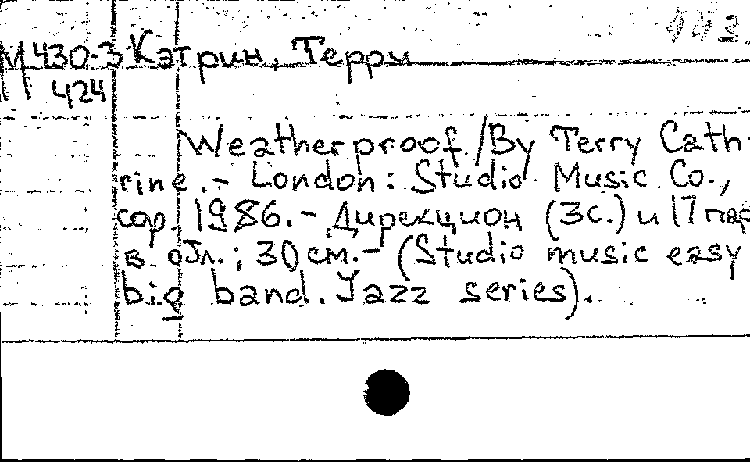 М 430-3 Кэтрин, Терри
424
Weatherproof / By Terry Cath-
rine. - London: Studio Music Co.,
cop. 1986. - Дирекцион (3с.) и 17 пар
в обл.; 30 см. - (Studio music easy
big band. Jazz series).